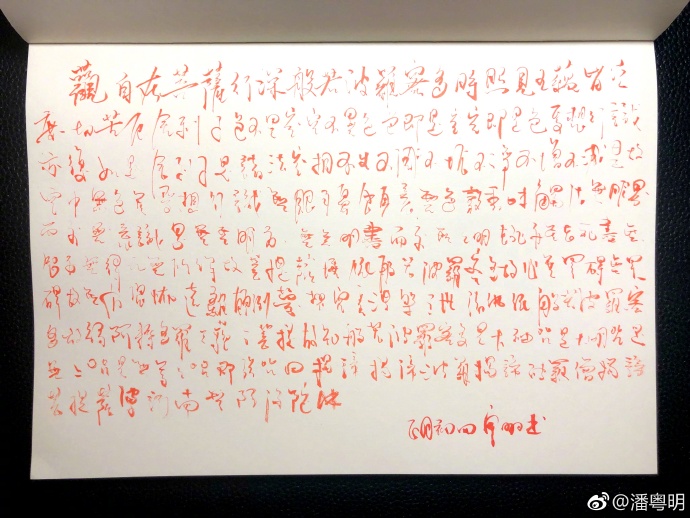 觀自在菩薩行深般若波羅蜜多時照見五蘊皆空
度一切苦厄舍利子色不異空空不異色色即是空空即是色受想行識
亦復如是舍利子是諸法空相不生不滅不垢不淨不增不減是故
空中無色無受想行識無眼耳鼻舌身意無色聲香味觸法無眼界
乃至無意識界無無明亦無無明盡而至老死亦無老死盡無
智亦無得以無所得故菩提薩埵依般若波羅蜜多故心無罣礙無罣
礙故無有恐怖遠離顛倒夢想究竟涅槃三世諸佛依般若波羅蜜
多故得阿耨多羅三藐三菩提故知般若波羅蜜多是大神咒是大明咒是
無上咒是無等等咒即說咒曰揭諦揭諦波羅揭諦波羅僧揭諦
菩提薩婆訶南無阿彌陀佛
初四 粤明书
@潘粤明